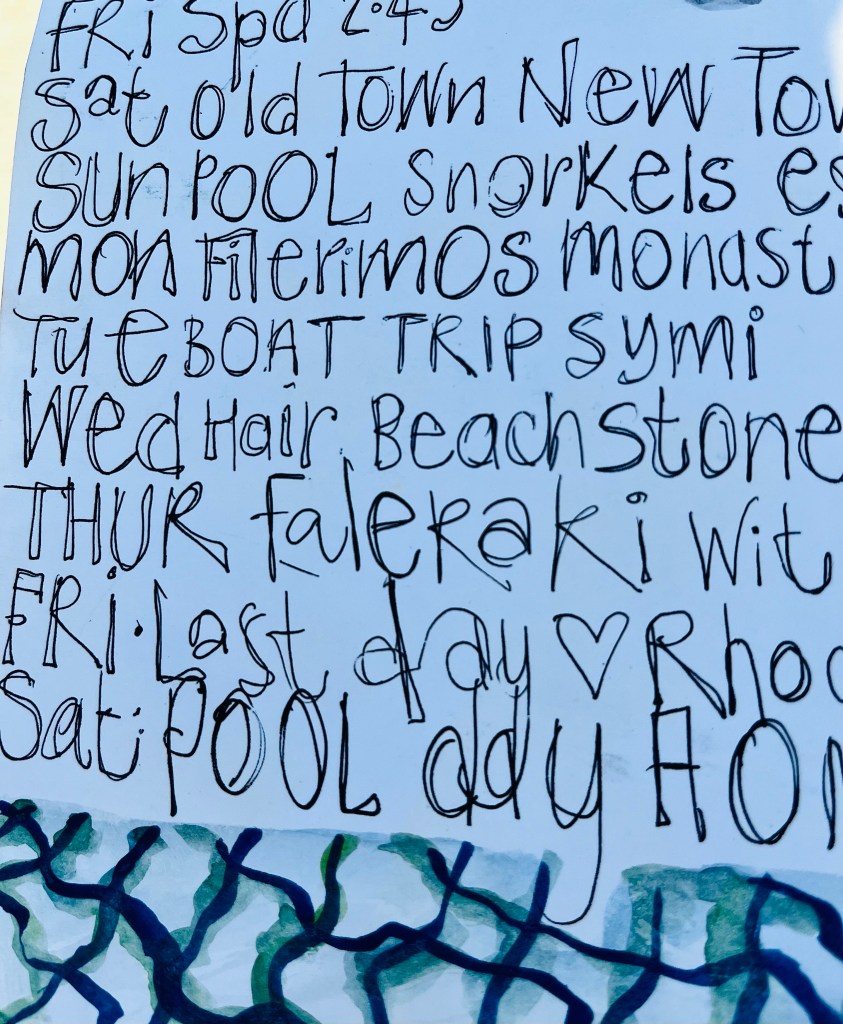 FRi Spa 2.45
Sat o'ld TOWN NeW Tow
SUN POOL SnorKels es
mon FilerimOS monast
TUE BOAT TRIP Symi
Wed Hair Beach stone
THUR FaleRaKi Wit
FRi. Last day ♡ Rhod
Sat: POOL day HOM